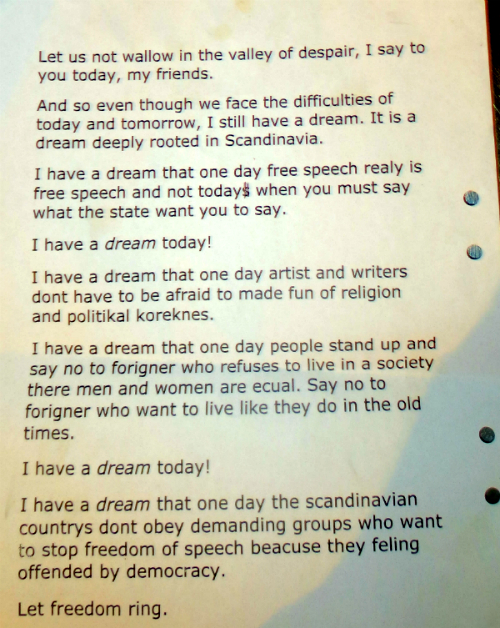 Let us not wallow in the valley of despair, I say to
you today, my friends.
And so even though we face the difficulties of
today and tomorrow, I still have a dream. It is a
dream deeply rooted in Scandinavia.
I have a dream that one day free speech realy is
free speech and not todays when you must say
what the state want you to say.
I have a dream today!
I have a dream that one day artist and writers
dont have to be afraid to made fun of religion
and politikal koreknes.
I have a dream that one day people stand up and
say no to forigner who refuses to live in a society
there men and women are ecual. Say no to
forigner who want to live like they do in the old
times.
I have a dream today!
I have a dream that one day the scandinavian
countrys dont obey demanding groups who want
to stop freedom of speech beacuse they feling
offended by democracy.
Let freedom ring.